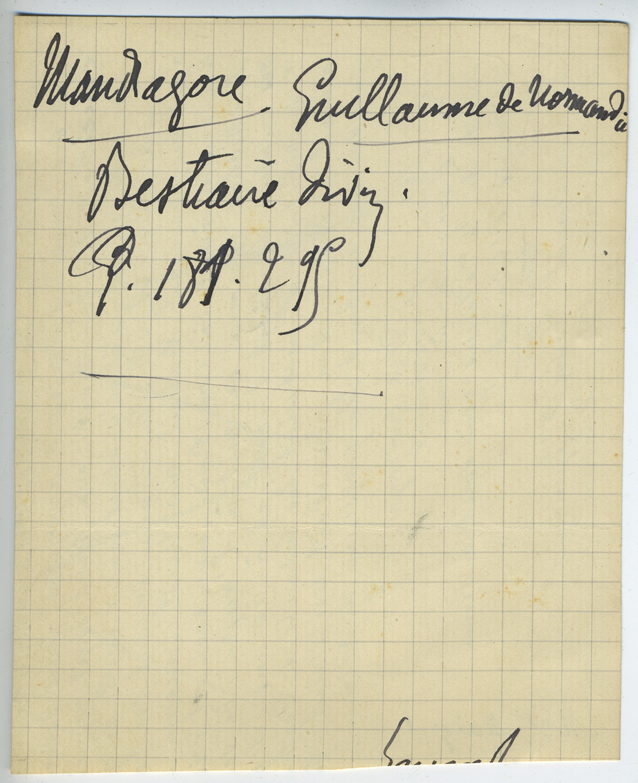 Mandragore. Guillaume de Normandie
Bestiaire divin.
P. 295